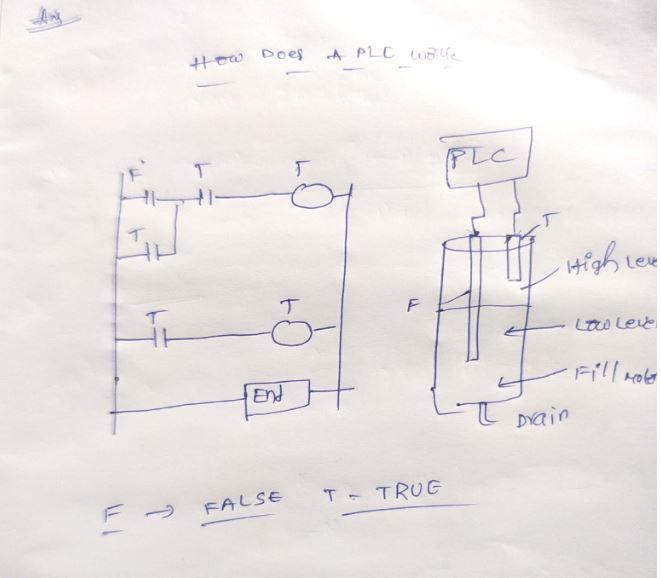 Ans
How Does A PLC work
F T T
T
T T
End
PLC
T
High Leve
F
Low Level
Fill moto
Drain
F → FALSE T - TRUE